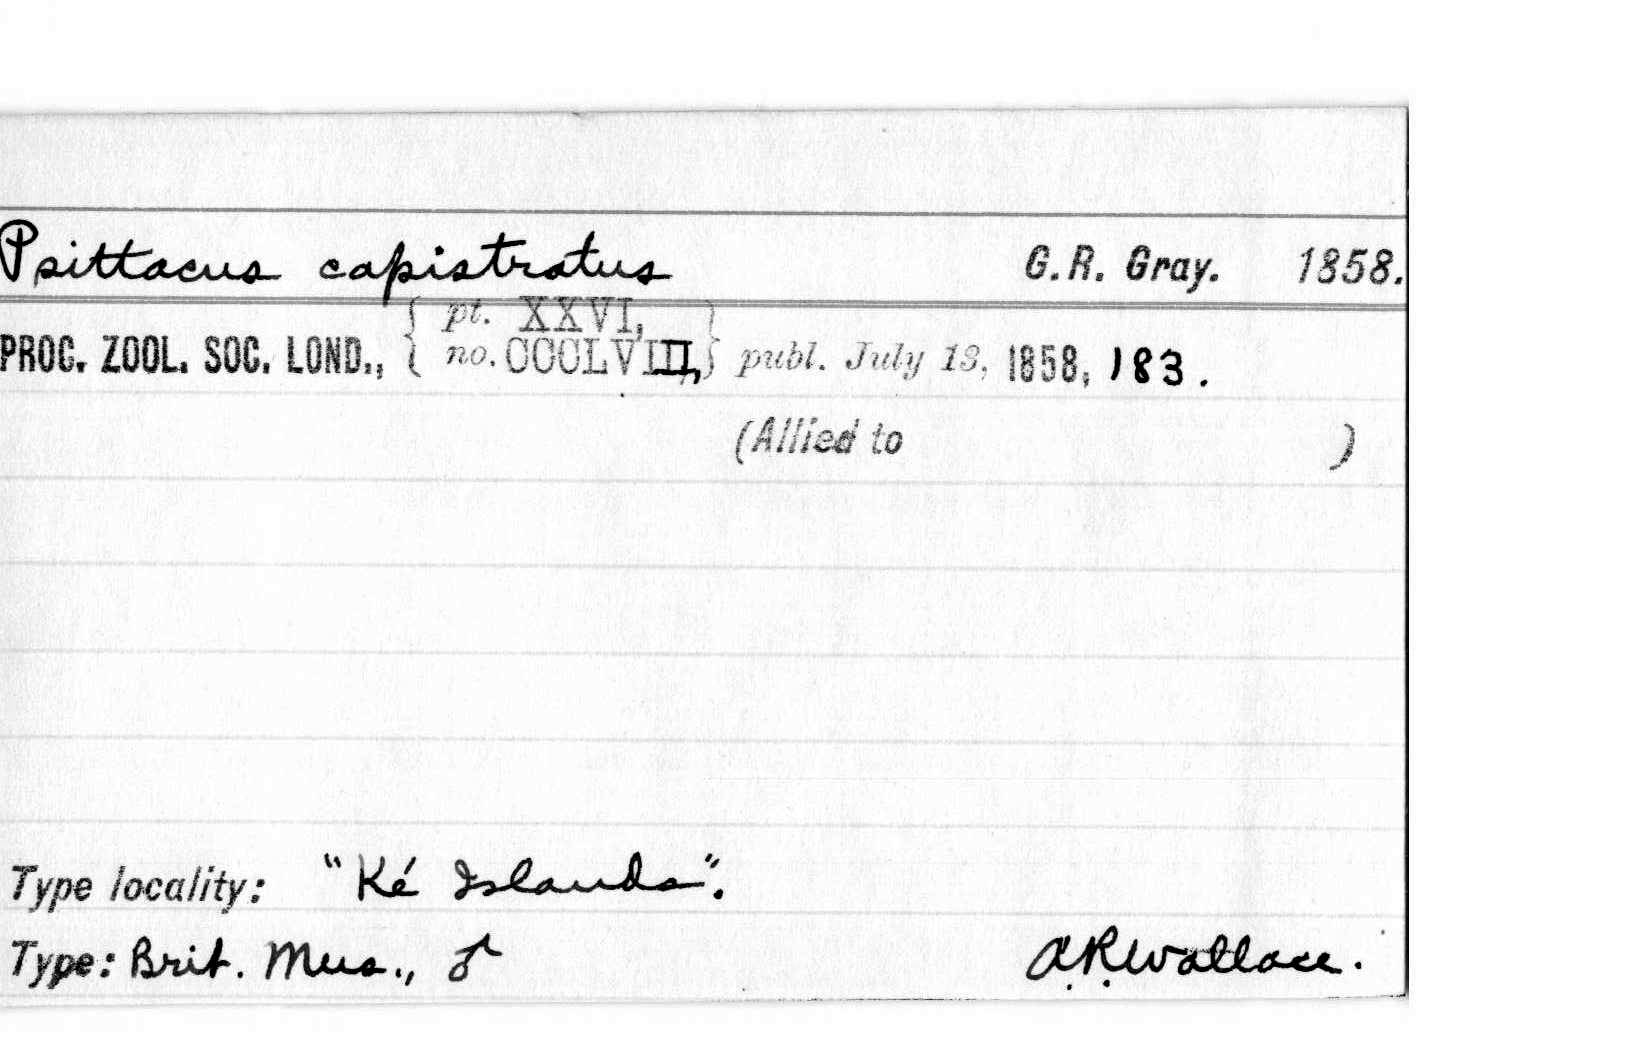 Psittacus capistratus G.R. Gray. 1858.
pt. XXVI,
PROC. ZOOL. SOC. LOND., { no. CCCLVIII, } publ. July 13, 1858, 183.
(Allied to )
Type locality: "Ké Islands".
Type: Brit. Mus., ♂ A.R.Wallace.